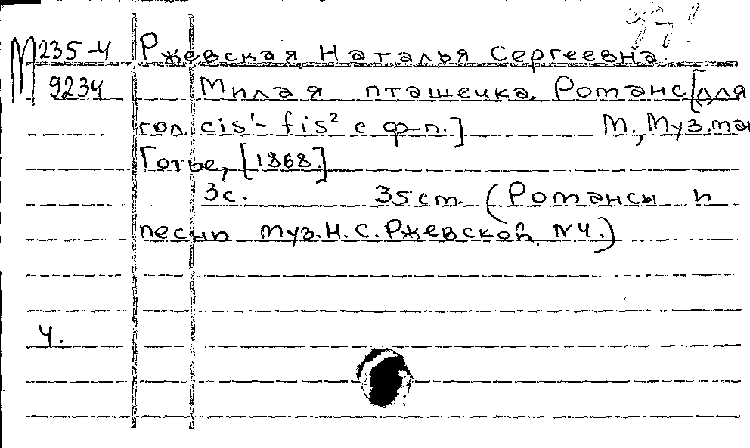 М 235-4 Ржевская, Наталья Сергеевна.
9234 Милая пташечка. Романс [для
гол. cis¹- fis² с ф-п.] М., Муз. маг
Готье, [1868.]
3с. 35cm. (Романсы и
песни муз. Н. С. Ржевской №4.)
4.